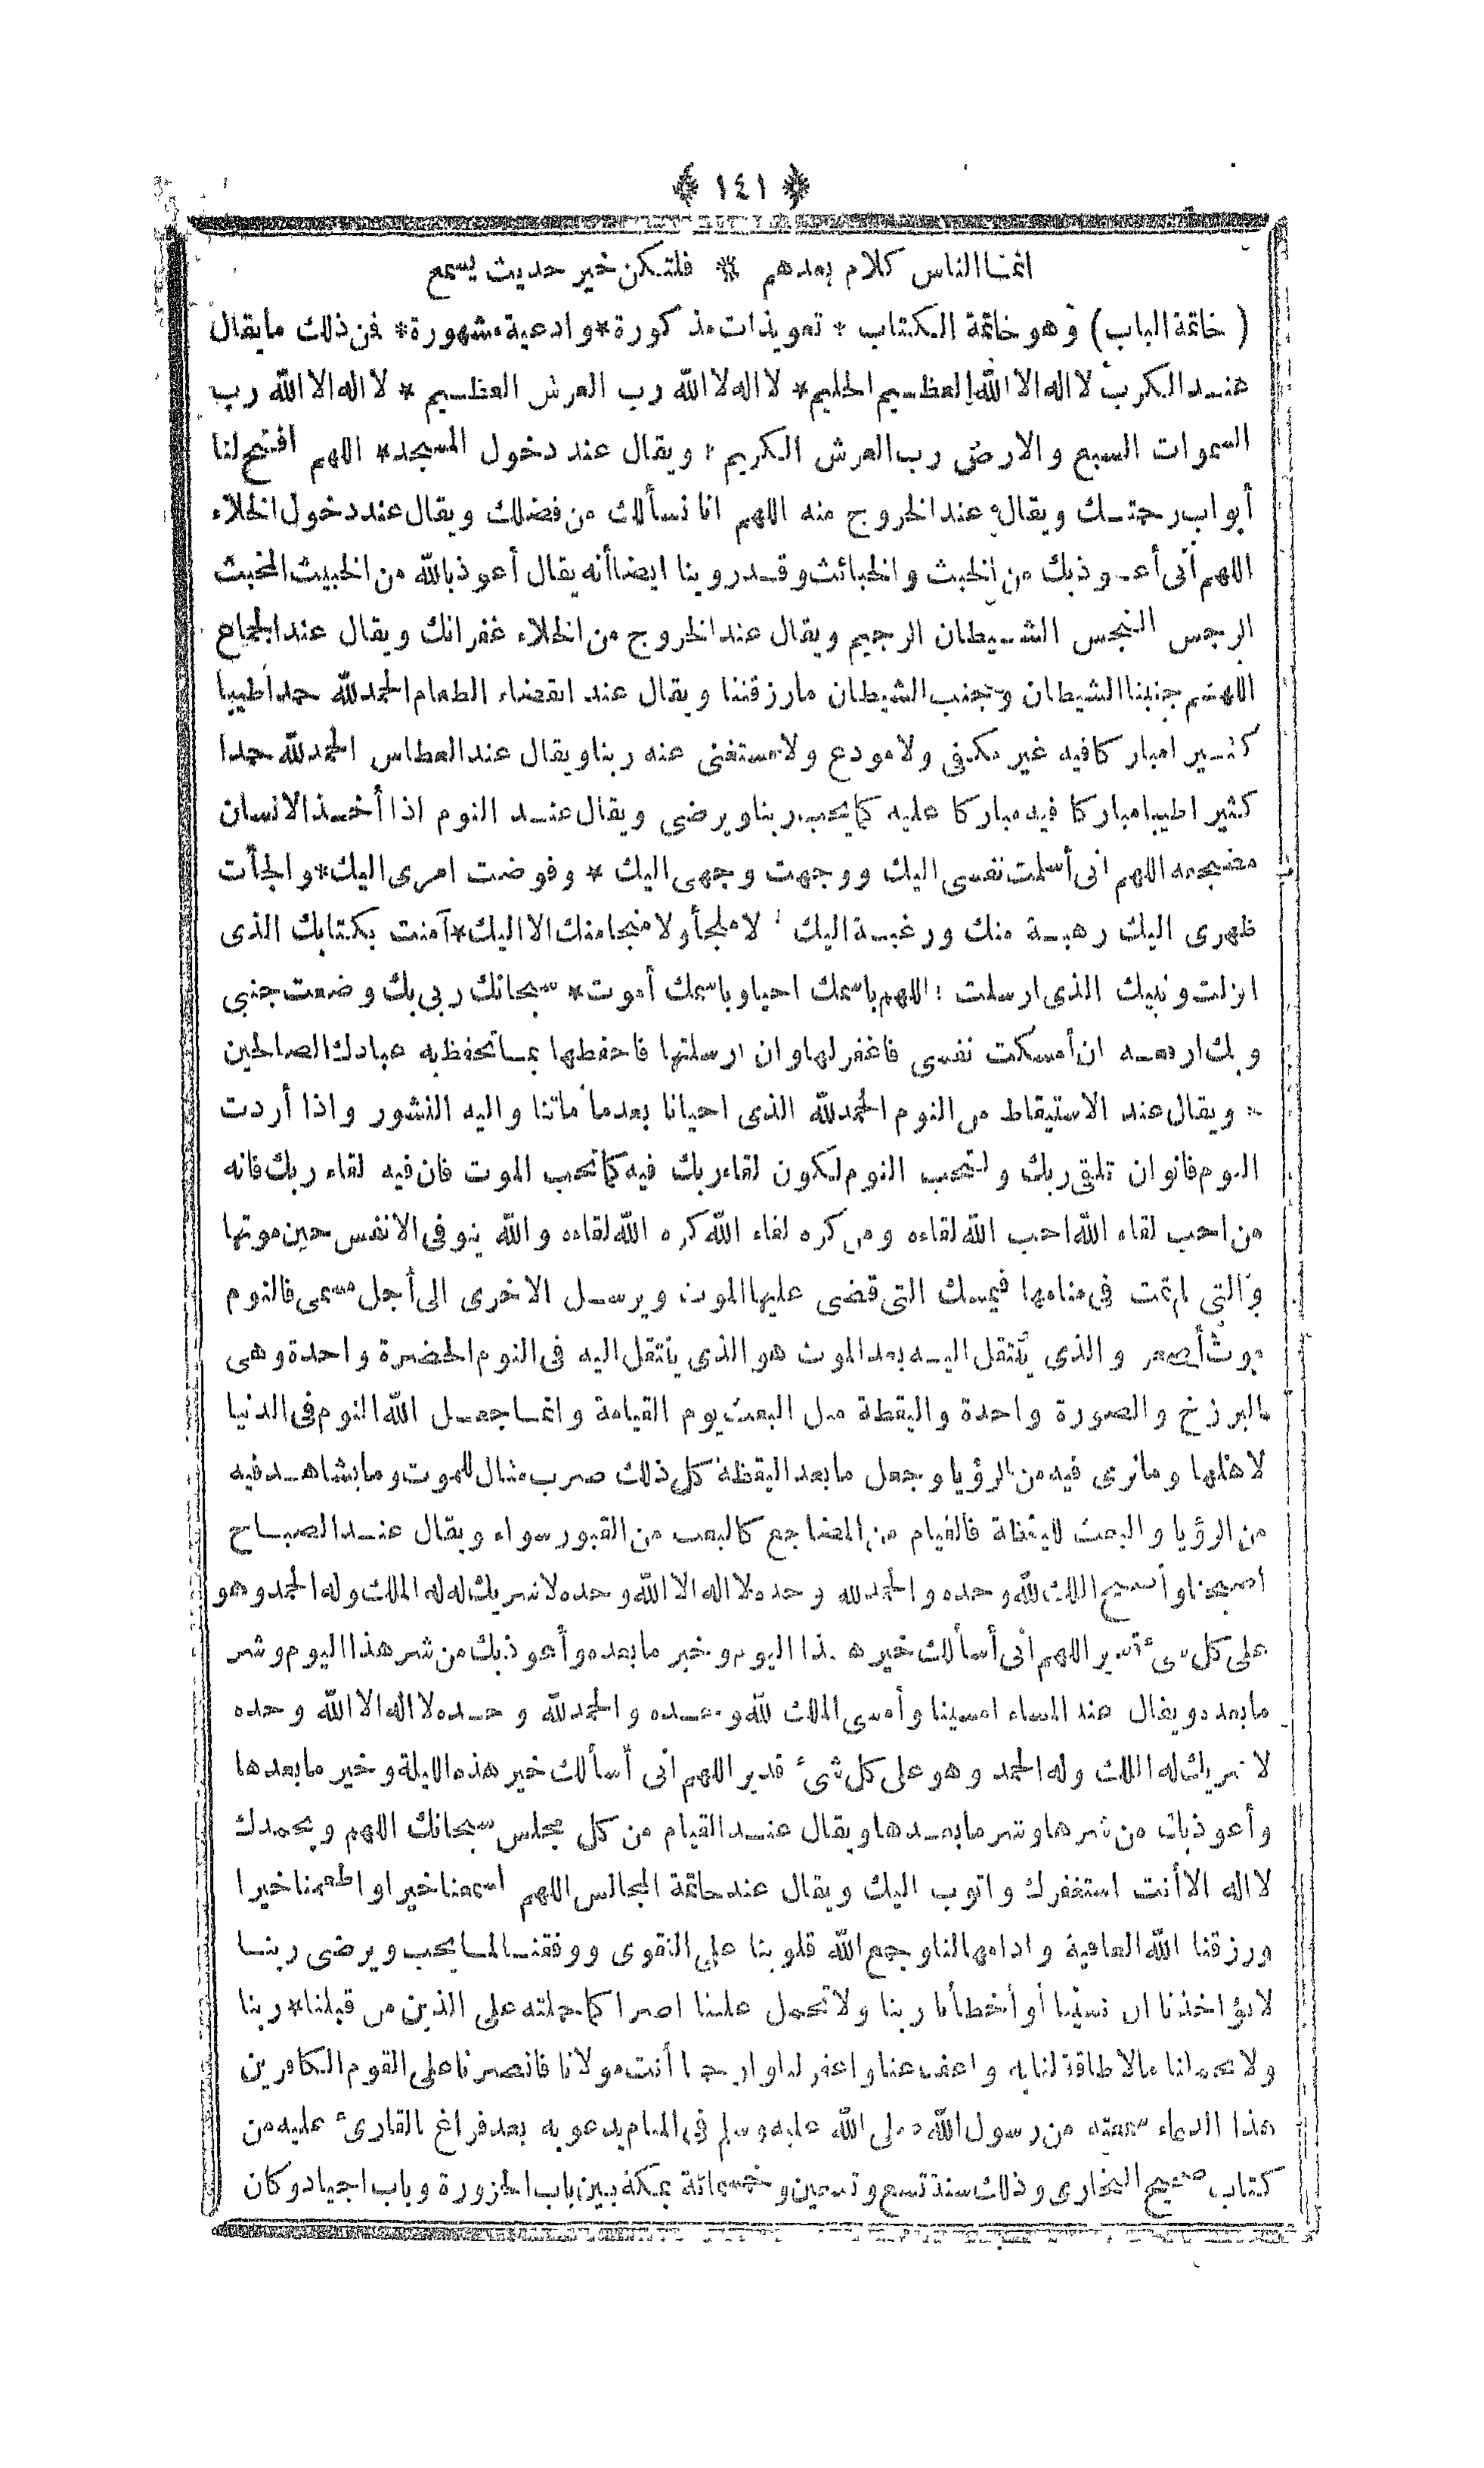 ﴿ ١٤١ ﴾
انما الناس كلام بعدهم * فلتكن خير حديث يسمع
( خاتمة الباب ) وهو خاتمة الكتاب * تعويذات مذكورة * وادعية مشهورة * فمن ذلك ما يقال
عند الكرب لا اله الا الله العظيم الحليم * لا اله الا الله رب العرش العظيم * لا اله الا الله رب
السموات السبع والارض رب العرش الكريم * ويقال عند دخول المسجد * اللهم افتح لنا
أبواب رحمتك ويقال عند الخروج منه اللهم انا نسألك من فضلك ويقال عند دخول الخلاء
اللهم انى أعوذ بك من الخبث والخبائث وقد روينا ايضا أنه يقال أعوذ بالله من الخبيث المخبث
الرجس النجس الشيطان الرجيم ويقال عند الخروج من الخلاء غفرانك ويقال عند الجماع
اللهم جنبنا الشيطان وجنب الشيطان ما رزقتنا ويقال عند انقضاء الطعام الحمد لله حمدا طيبا
كثيرا مباركا فيه غير مكفى ولا مودع ولا مستغنى عنه ربنا ويقال عند العطاس الحمد لله حمدا
كثيرا طيبا مباركا فيه مباركا عليه كما يحب ربنا ويرضى ويقال عند النوم اذا أخذ الانسان
مضجعه اللهم انى أسلمت نفسى اليك ووجهت وجهى اليك * وفوضت امرى اليك * والجأت
ظهرى اليك رهبة منك ورغبة اليك * لا ملجأ ولا منجا منك الا اليك * آمنت بكتابك الذى
انزلت ونبيك الذى ارسلت * اللهم باسمك احيا وباسمك أموت * سبحانك ربى بك وضعت جنبى
وبك ارفعه ان أمسكت نفسى فاغفر لها وان ارسلتها فاحفظها بما تحفظ به عبادك الصالحين
* ويقال عند الاستيقاظ من النوم الحمد لله الذى احيانا بعدما ماتنا واليه النشور واذا أردت
النوم فانو ان تلقى ربك ولتحب النوم لكون لقاء ربك فيه كما تحب الموت فان فيه لقاء ربك فانه
من احب لقاء الله احب الله لقاءه ومن كره لقاء الله كره الله لقاءه والله يتوفى الانفس حين موتها
والتى لم تمت فى منامها فيمسك التى قضى عليها الموت ويرسل الاخرى الى أجل مسمى فالنوم
موت أصغر والذى ينتقل اليه بعد الموت هو الذى ينتقل اليه فى النوم الحضرة واحدة وهى
البرزخ والصورة واحدة واليقظة مثل البعث يوم القيامة وانما جعل الله النوم فى الدنيا
لاهلها وما نرى فيه من الرؤيا وجعل ما بعد اليقظة كل ذلك ضرب مثال للموت وما يشاهد فيه
من الرؤيا والبعث لليقظة فالقيام من المضاجع كالبعث من القبور سواء ويقال عند الصباح
اصبحنا وأصبح الملك لله وحده والحمد لله وحده لا اله الا الله وحده لا شريك له له الملك وله الحمد وهو
على كل شىء قدير اللهم انى أسألك خير هذا اليوم وخير ما بعده وأعوذ بك من شر هذا اليوم وشر
ما بعده ويقال عند المساء امسينا وأمسى الملك لله وحده والحمد لله وحده لا اله الا الله وحده
لا شريك له الملك وله الحمد وهو على كل شىء قدير اللهم انى أسألك خير هذه الليلة وخير ما بعدها
وأعوذ بك من شرها وشر ما بعدها ويقال عند القيام من كل مجلس سبحانك اللهم وبحمدك
لا اله الا أنت استغفرك واتوب اليك ويقال عند خاتمة المجالس اللهم اسمعنا خيرا واطعمنا خيرا
ورزقنا الله العافية وادامها لنا وجمع الله قلوبنا على التقوى ووفقنا لما يحب ويرضى ربنا
لا تؤاخذنا ان نسينا أو أخطأنا ربنا ولا تحمل علينا اصرا كما حملته على الذين من قبلنا * ربنا
ولا تحملنا ما لا طاقة لنا به واعف عنا واغفر لنا وارحمنا أنت مولانا فانصرنا على القوم الكافرين
هذا الدعاء سمعته من رسول الله صلى الله عليه وسلم فى المنام يدعو به بعد فراغ القارئ عليه من
كتاب صحيح البخارى وذلك سنة تسع وتسعين وخمسمائة بمكة بين باب الحزورة وباب اجياد وكان